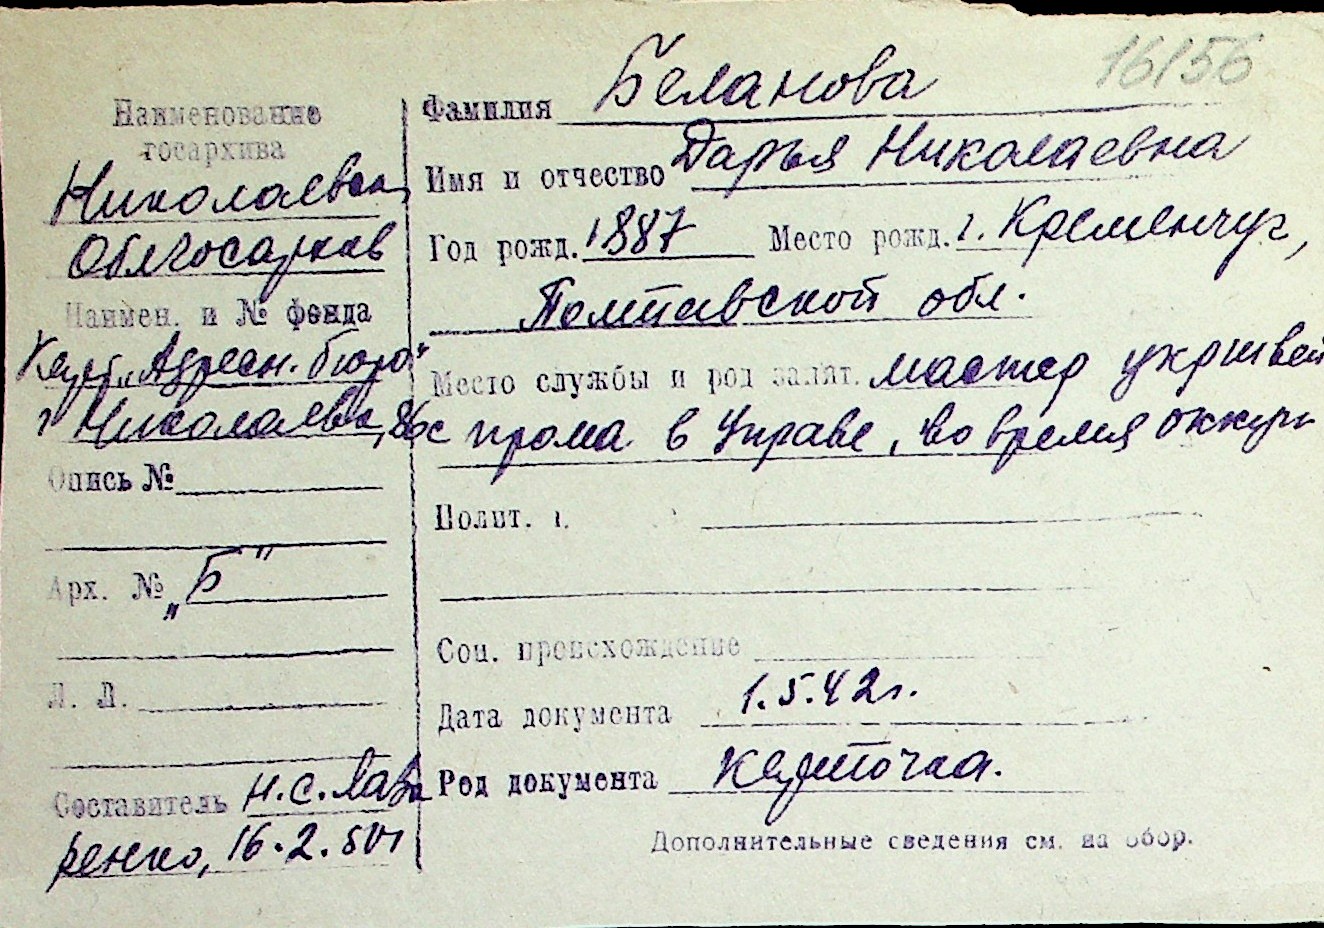 16156
Наименование
госархива
Николаевск.
Облгосархив
Наимен. и № фонда
Карт. „Адресн. бюро"
г. Николаева, 86с
Опись №
Арх. № „Б"
Л. Л.
Составитель Н.С. Лав
ренко, 16.2.50г
Фамилия Беланова
Имя и отчество Дарья Николаевна
Год рожд. 1887 Место рожд. г. Кременчуг,
Полтавской обл.
Место службы и род занят. мастер укршвей
прома в Управе, во время оккуп
Полит.
Соц. происхождение
Дата документа 1.5.42г.
Род документа карточка.
Дополнительные сведения см. на обор.